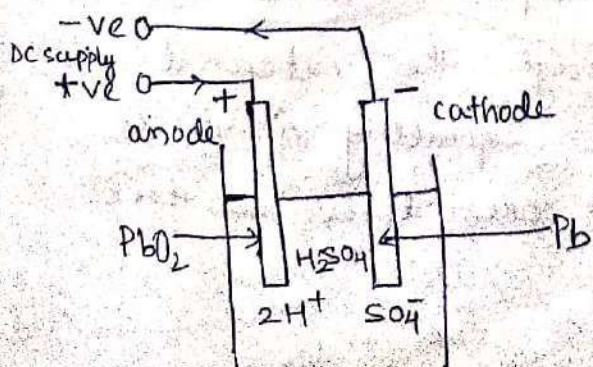 -ve
DC supply
+ve
+
-
anode
cathode
PbO₂
H₂SO₄
Pb
2H⁺
SO₄⁻